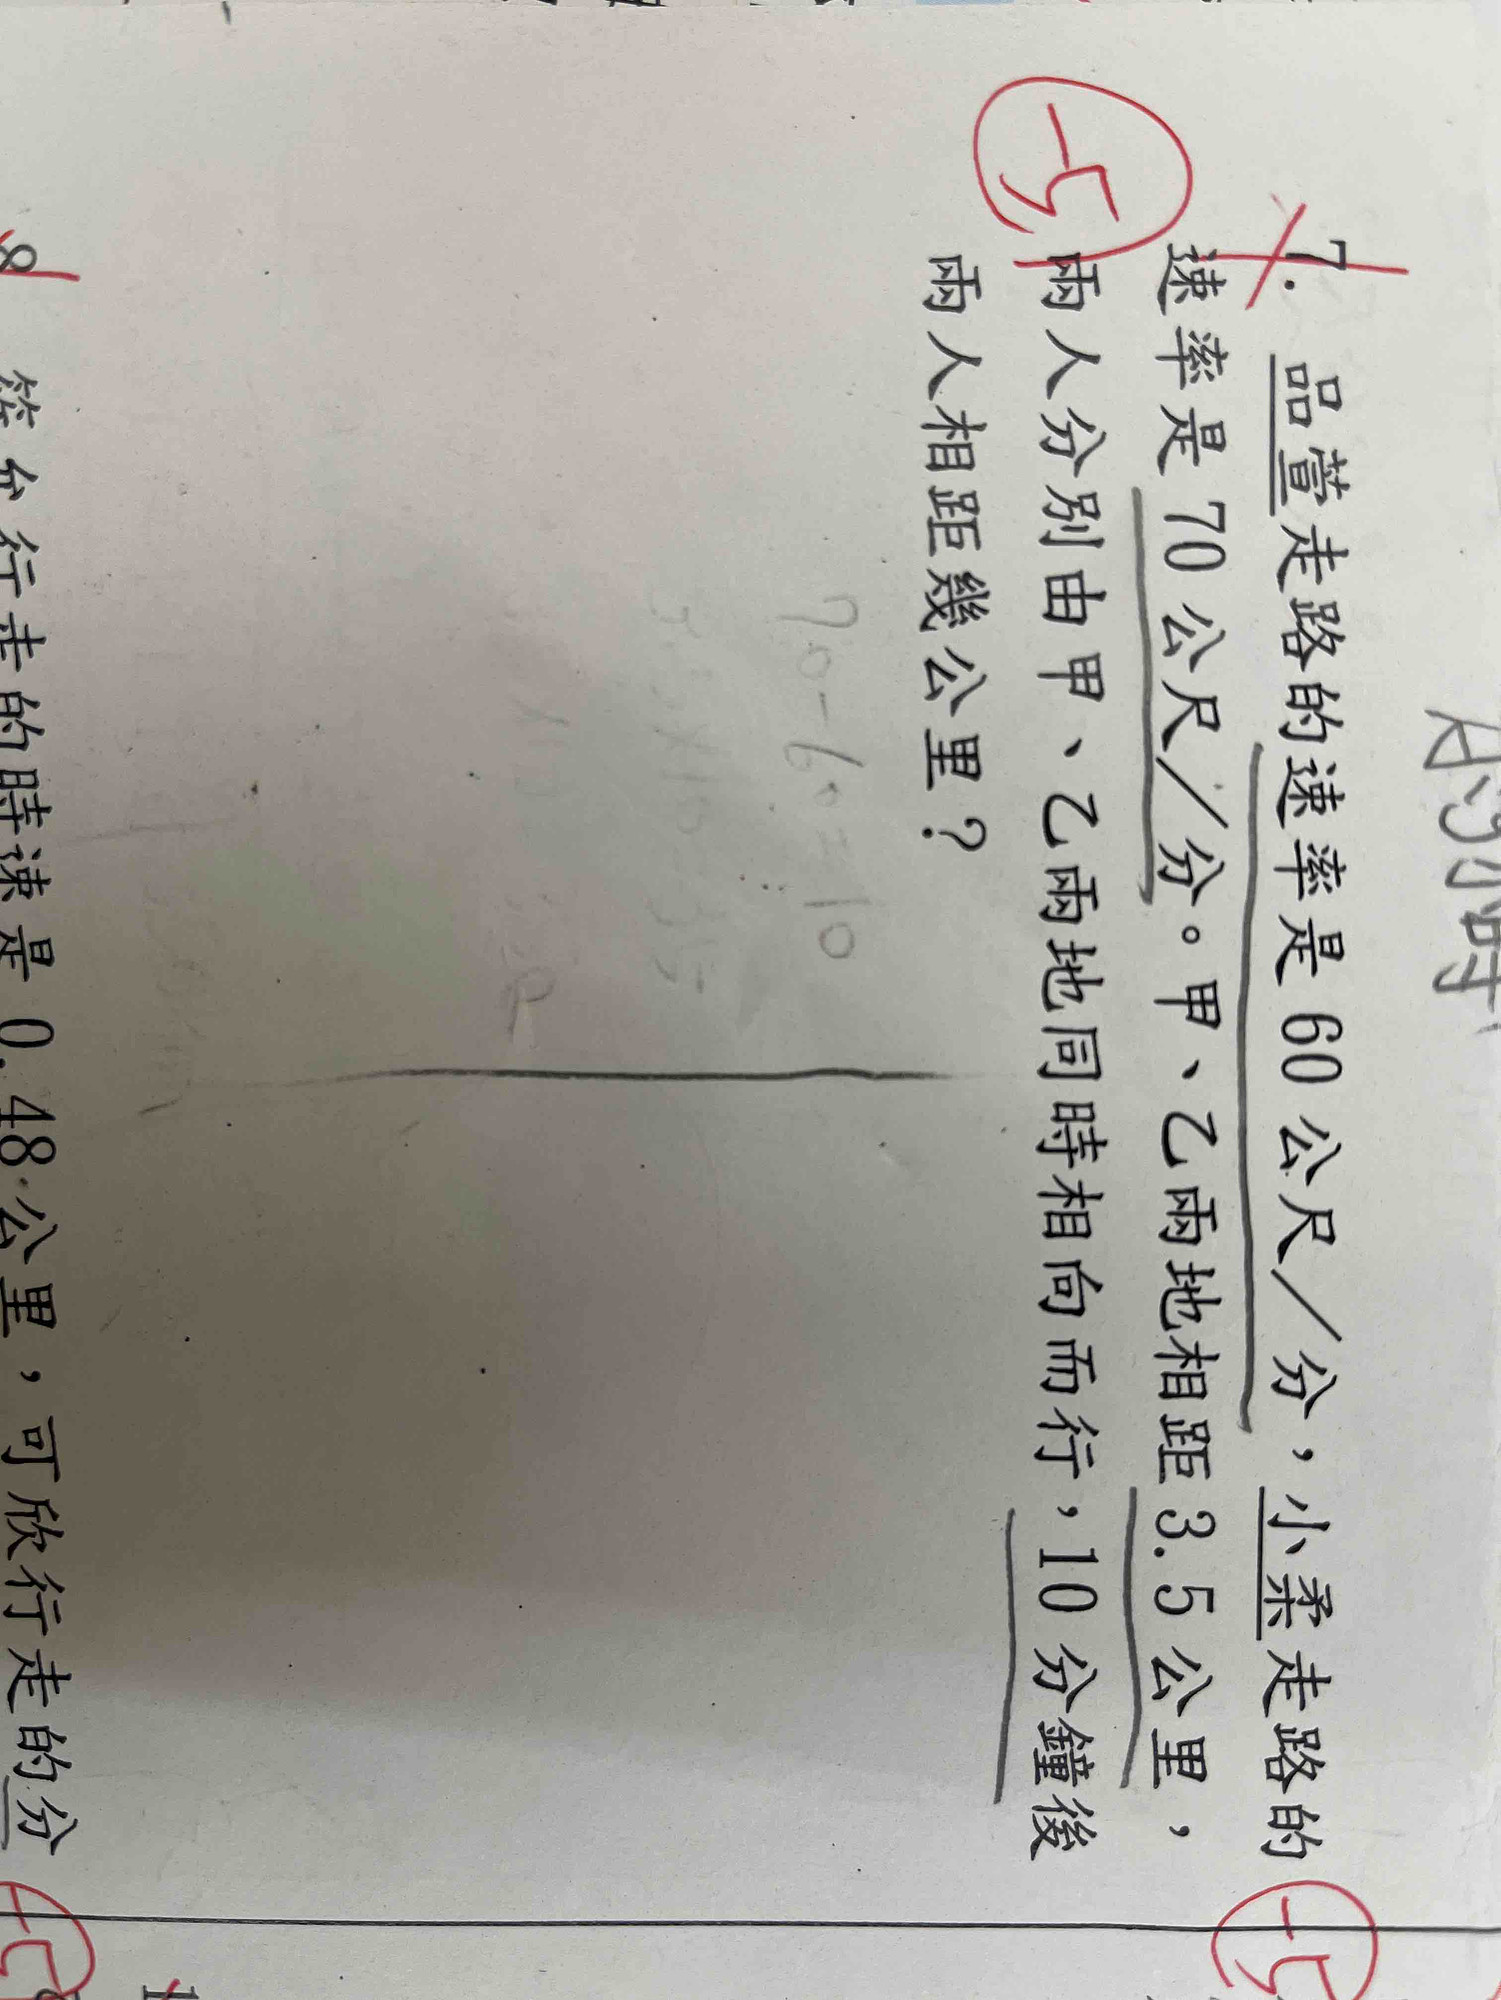 時小時
-5
7. 品萱走路的速率是60公尺／分，小柔走路的
速率是70公尺／分。甲、乙兩地相距3.5公里，
兩人分別由甲、乙兩地同時相向而行，10分鐘後
兩人相距幾公里？
70-60=10
3.5×10=35
8
行走的時速是0.48公里，可欣行走的分
-5
-5
1